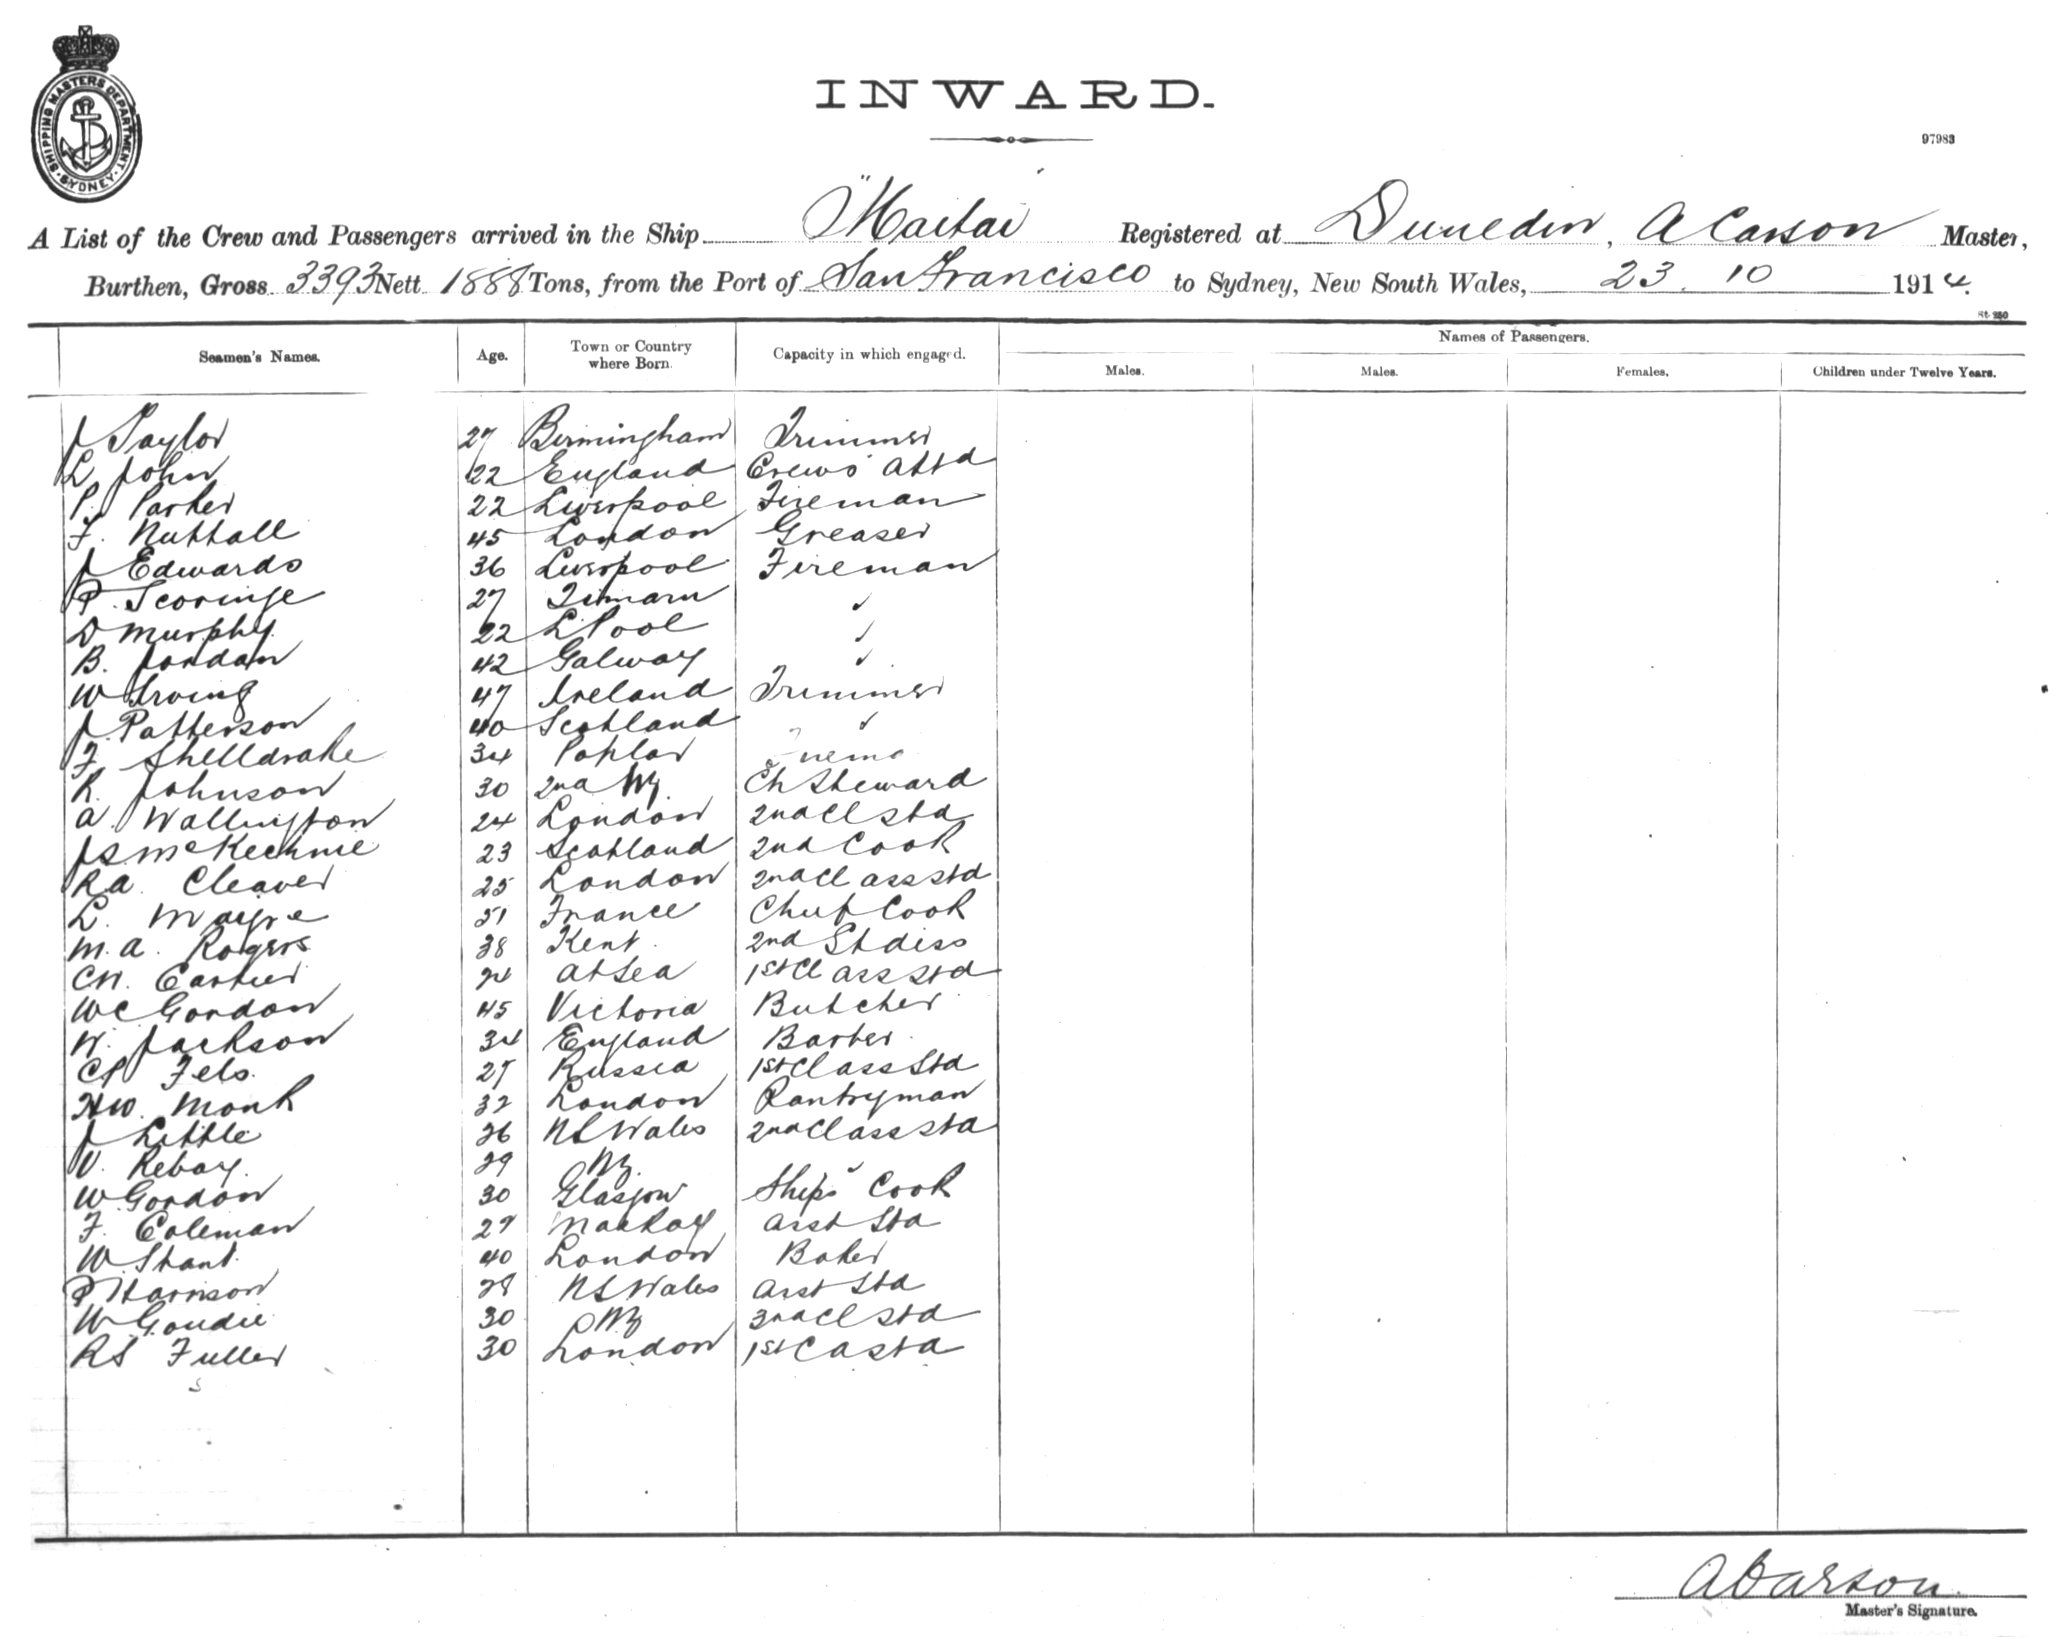 SHIPPING MASTERS DEPARTMENT. SYDNEY
INWARD.
97983
A List of the Crew and Passengers arrived in the Ship "Maitai Registered at Dunedin, A Carson Master,
Burthen, Gross 3393 Nett 1888 Tons, from the Port of San Francisco to Sydney, New South Wales, 23. 10 1914.
St. 280
Names of Passengers.
Seamen's Names. Age. Town or Country where Born. Capacity in which engaged. Males. Males. Females. Children under Twelve Years.
J Taylor 27 Birmingham Trimmer
L John 22 England Crews attd
P. Parker 22 Liverpool Fireman
F. Nuttall 45 London Greaser
J Edwards 36 Liverpool Fireman
P. Scoringe 27 Timaru ✓
D Murphy 22 L'Pool ✓
B. Jordan 42 Galway ✓
W Irving 47 Ireland Trimmer
J. Patterson 40 Scotland ✓
F Shelldrake 34 Poplar
R. Johnson 30 NZ Ch Steward
A. Wallington 24 London 2nd Cl Std
JS McKechnie 23 Scotland 2nd Cook
RA Cleaver 25 London 2nd Cl ass Std
L. 51 France Chief Cook
M.A. Rogers 38 Kent 2nd Stdiss
CN. at Sea 1st Cl ass Std
WC Gordon 45 Victoria Butcher
W. Jackson 34 England Barber
Fels. 27 Russia 1st Class Std
HW. Monk 32 London Pantryman
J Little 26 NS Wales 2nd Class Std
V. Rebay. 29 NZ. ✓
W Gordon 30 Glasgow Ships Cook
F. Coleman 27 Mackay Asst Std
W. Shant 40 London Baker
P Harrison 28 NS Wales Asst Std
W Goudie 30 NZ 3rd Cl Std
RS Fuller 30 London 1st C a Std
A Carson.
Master's Signature.